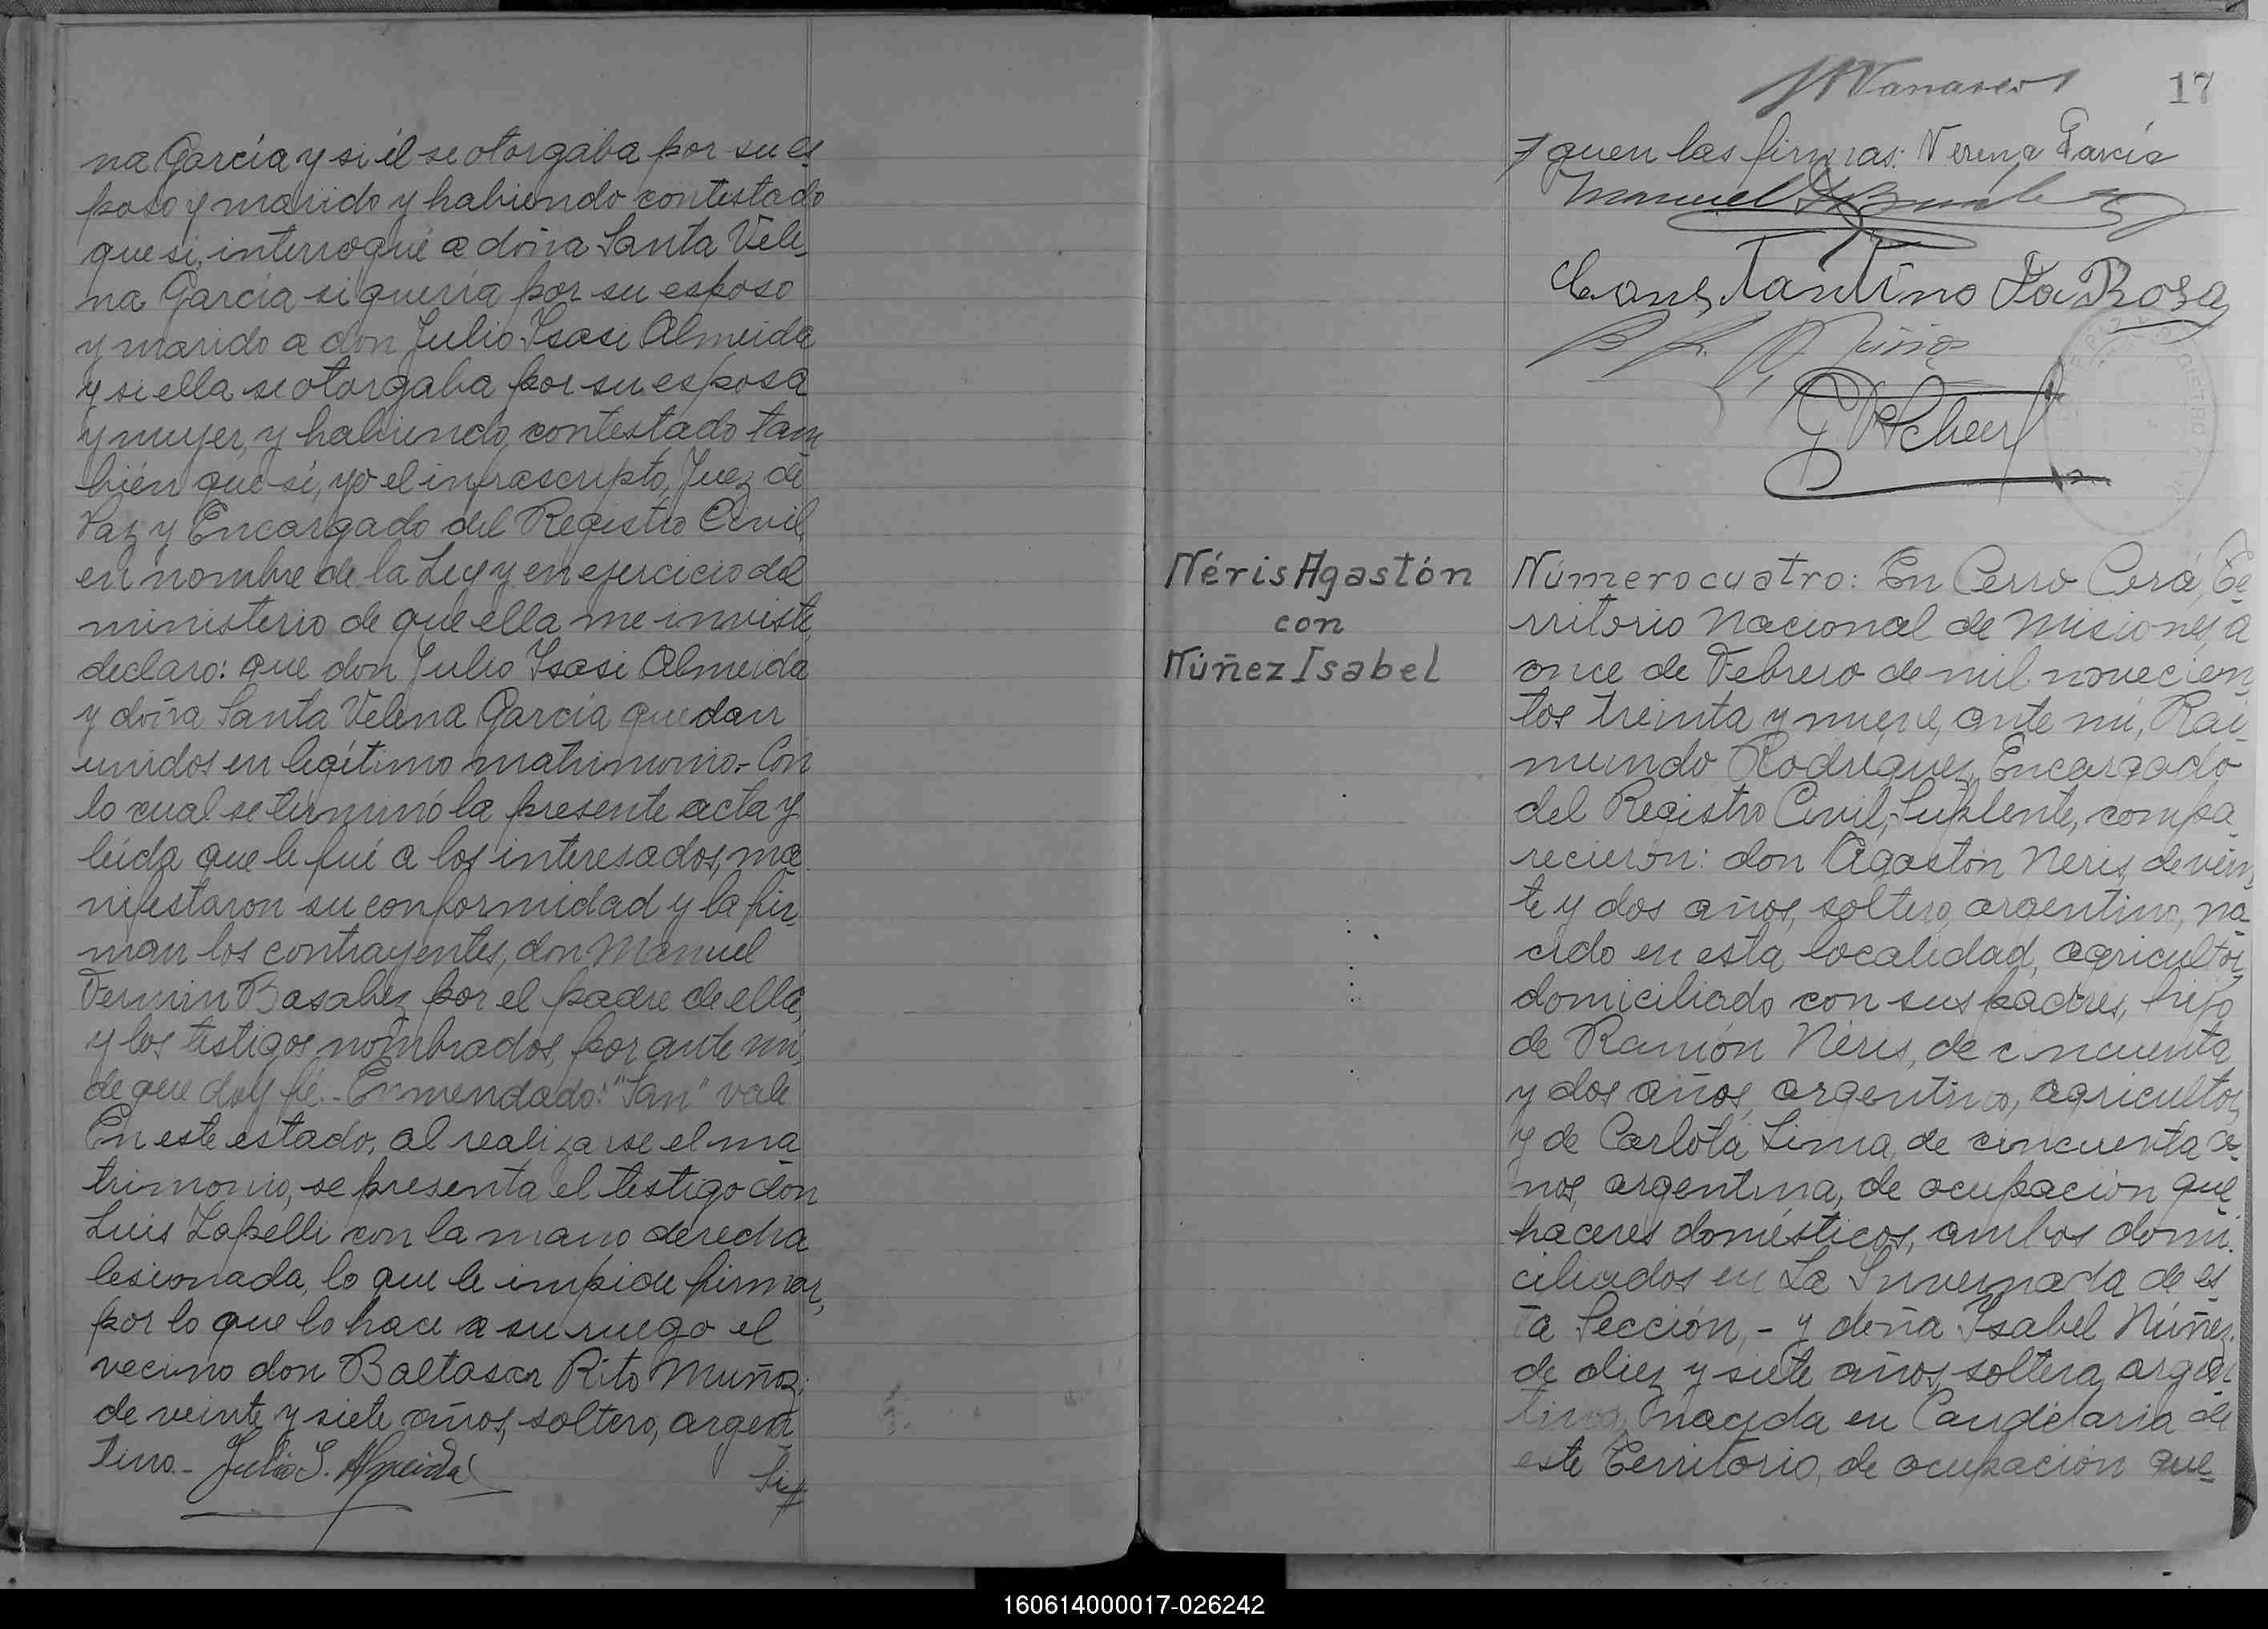 na García y si él se otorgaba por su es
poso y marido y habiendo contestado
que si, interrogué a doña Santa Vele-
na García si quería por su esposo
y marido a don Julio Isasi Almeida
y si ella se otorgaba por su esposa
y mujer, y habiendo contestado tam
bién que sí, yo el infrascripto, Juez de
Paz y Encargado del Registro Civil,
en nombre de la Ley y en ejercicio del
ministerio de que ella me inviste,
declaro: que don Julio Isasi Almeida
y doña Santa Velena García quedan
unidos en legítimo matrimonio.- Con
lo cual se terminó la presente acta y
leida que le fué a los interesados, ma-
nifestaron su conformidad y la fir-
man los contrayentes, don Manuel
Fermin Basabez por el padre de ella,
y los testigos nombrados, por ante mí,
de que doy fé.- Enmendado: "San" vale
En este estado, al realizarse el ma-
trimonio, se presenta el testigo don
Luis Zapelli con la mano derecha
lesionada, lo que le impide firmar,
por lo que lo hace a su ruego el
vecino don Baltasar Rito Muñoz,
de veinte y siete años, soltero, argen-
tino.- Julio I. Almeida
17
guen las firmas: Verena García
Manuel
Constantino Da Rosa
Néris Agastón
con
Núñez Isabel
Número cuatro: En Cerro Corá, Te-
rritorio Nacional de Misiones, a
once de Febrero de mil novecien-
tos treinta y nueve, ante mí, Rai-
mundo Rodríguez, Encargado
del Registro Civil, Suplente, compa-
recieron: don Agastón Neris, de vein-
te y dos años, soltero, argentino, na-
cido en esta localidad, agricultor,
domiciliado con sus padres, hijo
de Ramón Néris, de cincuenta
y dos años, argentino, agricultor,
y de Carlota Lima, de cincuenta a-
ños, argentina, de ocupación que-
haceres domésticos, ambos domi-
ciliados en La Invernada de es-
ta Sección,- y doña Isabel Núñez.
de diez y siete años, soltera, argen-
tina, nacida en Candelaria de
este Territorio, de ocupación que-
160614000017-026242